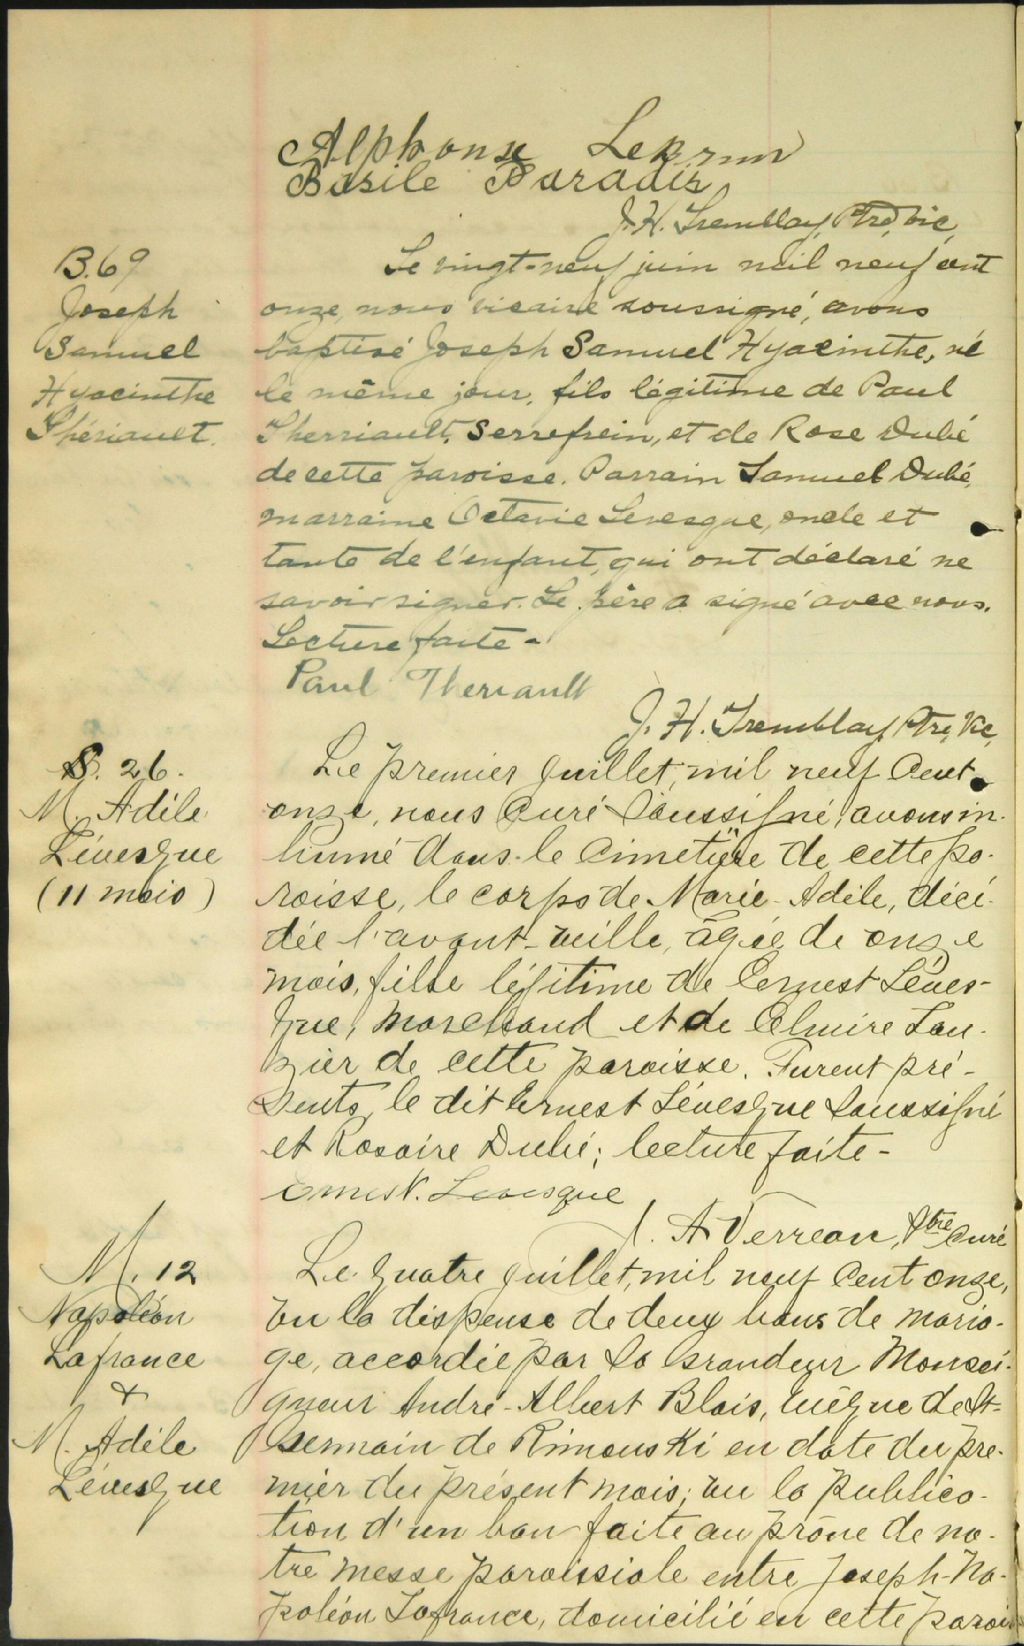 Alphonse Lebrun
Basile Paradis
J. H. Tremblay, Ptre, vic.
B. 69
Joseph
Samuel
Hyacinthe
Thériault.
Le vingt-neuf juin mil neuf cent
onze, nous vicaire soussigné, avons
baptisé Joseph Samuel Hyacinthe, né
le même jour, fils légitime de Paul
Therriault, Serrefrein, et de Rose Dubé
de cette paroisse. Parrain Samuel Dubé,
marraine Octavie Levesque, oncle et
tante de l'enfant, qui ont déclaré ne
savoir signer. Le père a signé avec nous.
Lecture faite -
Paul Theriault
J. H. Tremblay, Ptre, Vic.
S. 26.
M. Adèle
Lévesque
(11 mois)
Le premier juillet, mil neuf Cent
onze, nous Curé Soussigné, avons in-
humé dans le Cimetière de cette pa-
roisse, le corps de Marie-Adèle, décé-
dée l'avant-veille, âgée de onze
mois, fille légitime de Ernest Léves-
que, marchand et de Elmire Lau-
zier de cette paroisse. Furent pré-
sents, le dit Ernest Lévesque Soussigné
et Rosaire Dubé; lecture faite -
Ernest. Levesque
J. A. Verreau, Ptre Curé
M. 12
Napoléon
Lafrance
+
M. Adèle
Lévesque
Le quatre juillet, mil neuf Cent onze,
vu la dispense de deux bans de maria-
ge, accordée par Sa Grandeur Monsei-
gneur André-Albert Blais, Evêque de St-
Germain de Rimouski en date du pre-
mier du présent mois; vu la publica-
tion d'un ban faite au prône de no-
tre messe paroissiale entre Joseph-Na-
poléon Lafrance, domicilié en cette parois